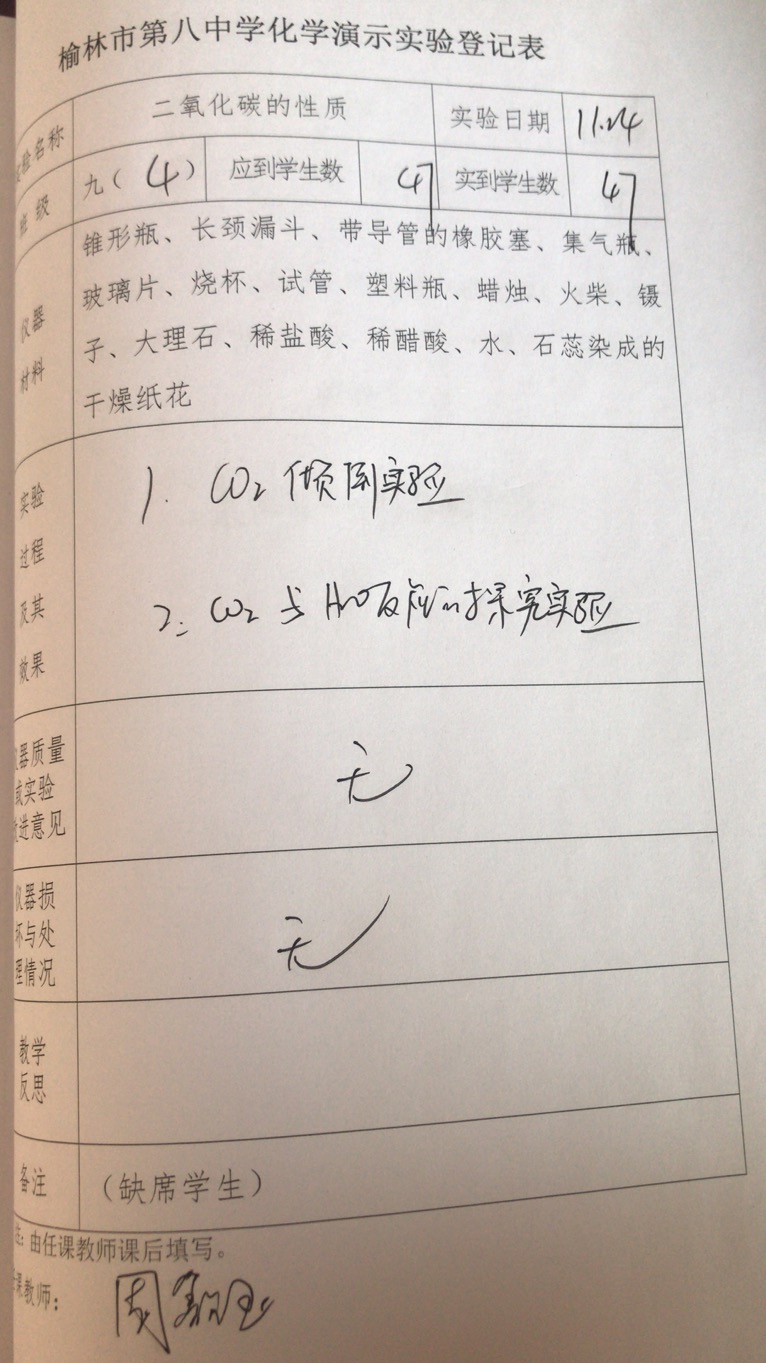 榆林市第八中学化学演示实验登记表
实验名称 二氧化碳的性质 实验日期 11.24
班 级 九（4） 应到学生数 47 实到学生数 47
仪器
材料
锥形瓶、长颈漏斗、带导管的橡胶塞、集气瓶、
玻璃片、烧杯、试管、塑料瓶、蜡烛、火柴、镊
子、大理石、稀盐酸、稀醋酸、水、石蕊染成的
干燥纸花
实验
过程
及其
效果
1. CO₂ 倾倒实验
2. CO₂ 与 H₂O反应的探究实验
仪器质量
或实验
改进意见
无
仪器损
坏与处
理情况
无
教学
反思
备注 （缺席学生）
注：由任课教师课后填写。
课教师：周